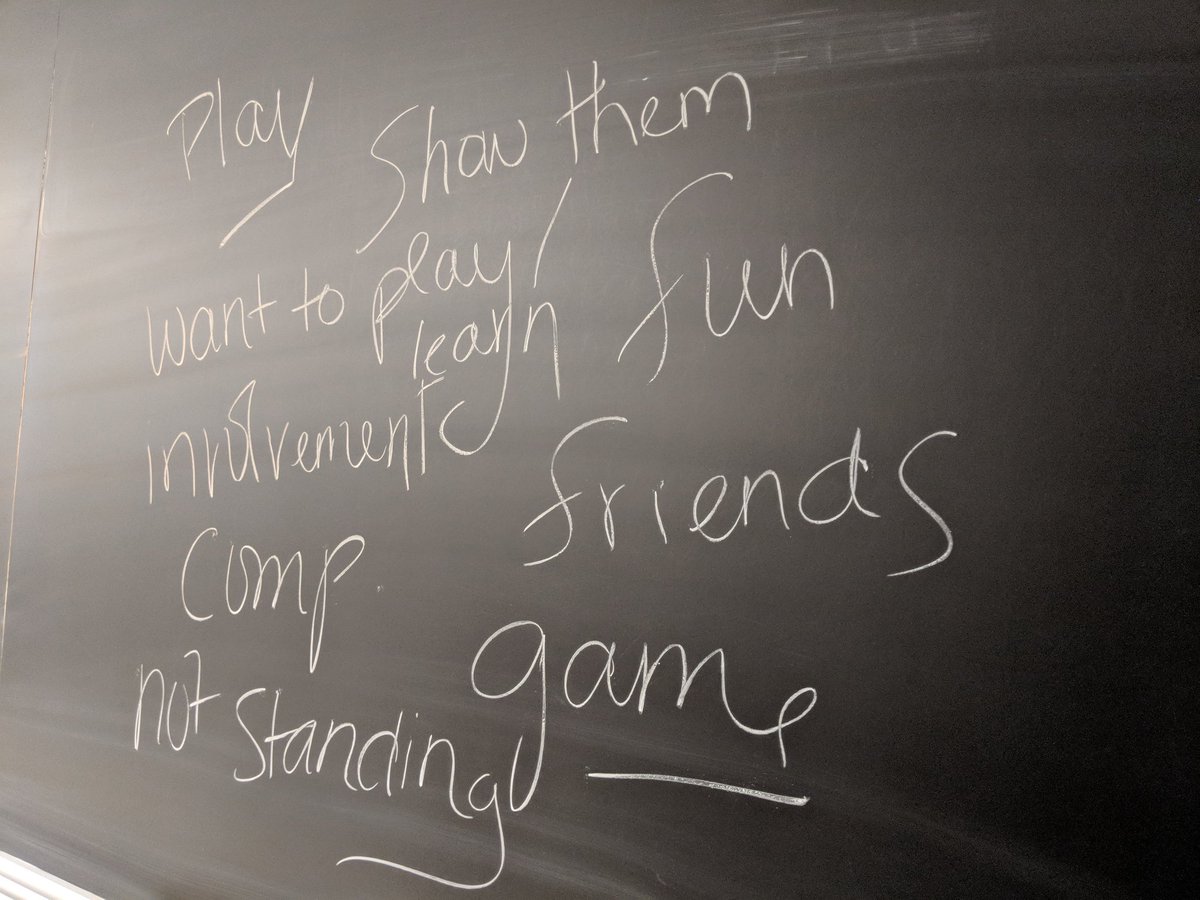 Play
Show them
want to play/
learn
fun
involvement
friends
comp.
game
not standing